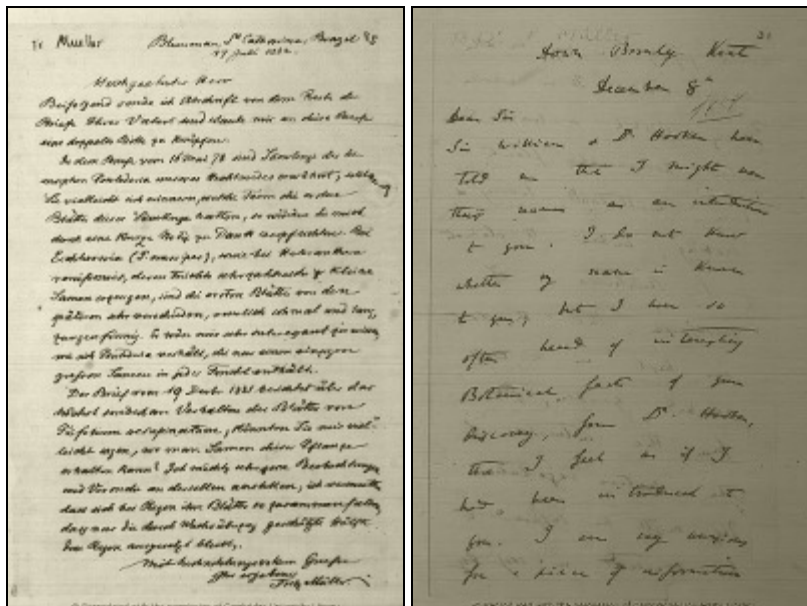 Mueller
Blumenau, Sta Catharina, Brazil
Juli 1882.
Hochgeehrter Herr
Beifolgend sende ich Abschrift von dem Reste der
Briefe Ihres Vaters und erlaube mir an diese Briefe
eine doppelte Bitte zu knüpfen.
In dem Briefe vom 16 Mai 78 sind Sämlinge der
Pontederia unseres Hochlandes erwähnt; sollten
Sie vielleicht sich erinnern, welche Form die ersten
Blätter dieser Sämlinge hatten, so würden Sie mich
durch eine kurze Notiz zu Dank verpflichten. Bei
Eichhornia (P. crassipes), sowie bei Heteranthera
reniformis, deren Früchte sehr zahlreiche & kleine
Samen erzeugen, sind die ersten Blätter von den
späteren sehr verschieden, schmal und lang,
Es wäre mir sehr interessant zu wissen,
wie sich Pontederia verhält, die nur einen einzigen
grossen Samen in jeder Frucht enthält.
Der Brief vom 19 Decbr 1881 berichtet über das
Verhalten der Blätter von
Könnten Sie mir viel-
leicht sagen, wo man Samen dieser Pflanze
erhalten kann? Ich möchte selbst Beobachtungen
und Versuche an derselben anstellen; ich vermuthe
dass sich bei Regen ihre Blätter so zusammenfalten,
dass nur die durch Wachsüberzug geschützte Hälfte
dem Regen ausgesetzt bleibt.
Mit hochachtungsvollem Grusse
Ihr ergebener
Fritz Müller.
31
Down Bromley Kent
December 8th
Dear Sir
Sir William & Dr Hooker have
told me that I might use
their names as an introduction
to you. I do not know
whether my name is known
to you; but I have so
often heard of interesting
Botanical facts of your
discovery, from Dr. Hooker,
that I feel as if I
had been introduced to
you. I am very anxious
for a piece of information